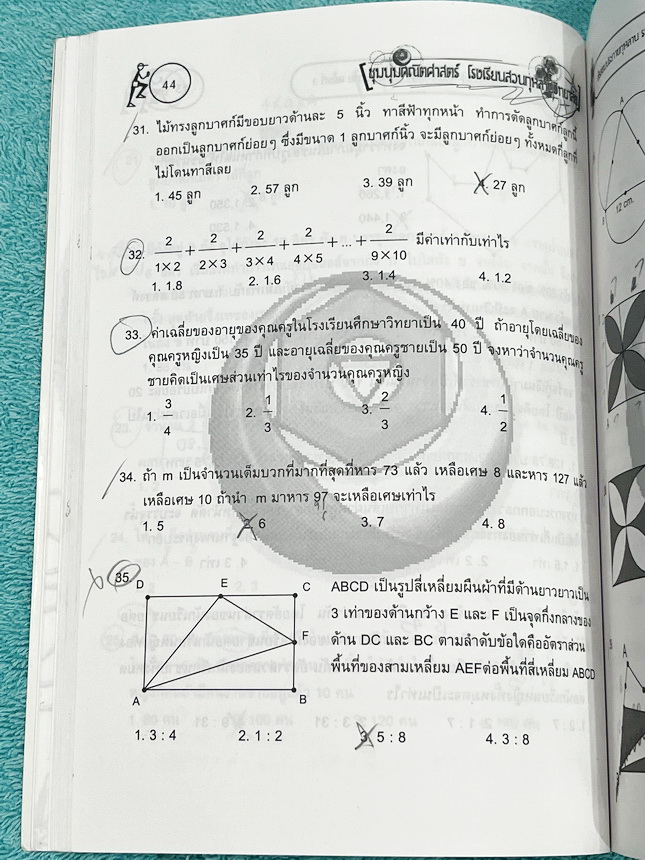 44
ชุมนุมคณิตศาสตร์ โรงเรียนสวนกุหลาบวิทยาลัย
31. ไม้ทรงลูกบาศก์มีขอบยาวด้านละ 5 นิ้ว ทาสีฟ้าทุกหน้า ทำการตัดลูกบาศก์ลูกนี้
ออกเป็นลูกบาศก์ย่อยๆ ซึ่งมีขนาด 1 ลูกบาศก์นิ้ว จะมีลูกบาศก์ย่อยๆ ทั้งหมดกี่ลูกที่
ไม่โดนทาสีเลย
1. 45 ลูก 2. 57 ลูก 3. 39 ลูก 4. 27 ลูก
32. 2/1×2 + 2/2×3 + 2/3×4 + 2/4×5 + ... + 2/9×10 มีค่าเท่ากับเท่าไร
1. 1.8 2. 1.6 3. 1.4 4. 1.2
33. ค่าเฉลี่ยของอายุของคุณครูในโรงเรียนศึกษาวิทยาเป็น 40 ปี ถ้าอายุโดยเฉลี่ยของ
คุณครูหญิงเป็น 35 ปี และอายุเฉลี่ยของคุณครูชายเป็น 50 ปี จงหาว่าจำนวนคุณครู
ชายคิดเป็นเศษส่วนเท่าไรของจำนวนคุณครูหญิง
1. 3/4 2. 1/3 3. 2/3 4. 1/2
34. ถ้า m เป็นจำนวนเต็มบวกที่มากที่สุดที่หาร 73 แล้ว เหลือเศษ 8 และหาร 127 แล้ว
เหลือเศษ 10 ถ้านำ m มาหาร 97 จะเหลือเศษเท่าไร
1. 5 2. 6 3. 7 4. 8
35
D E C
F
A B
ABCD เป็นรูปสี่เหลี่ยมผืนผ้าที่มีด้านยาวยาวเป็น
3 เท่าของด้านกว้าง E และ F เป็นจุดกึ่งกลางของ
ด้าน DC และ BC ตามลำดับข้อใดคืออัตราส่วน
พื้นที่ของสามเหลี่ยม AEFต่อพื้นที่สี่เหลี่ยม ABCD
1. 3 : 4 2. 1 : 2 3. 5 : 8 4. 3 : 8
A
12 cm.
A